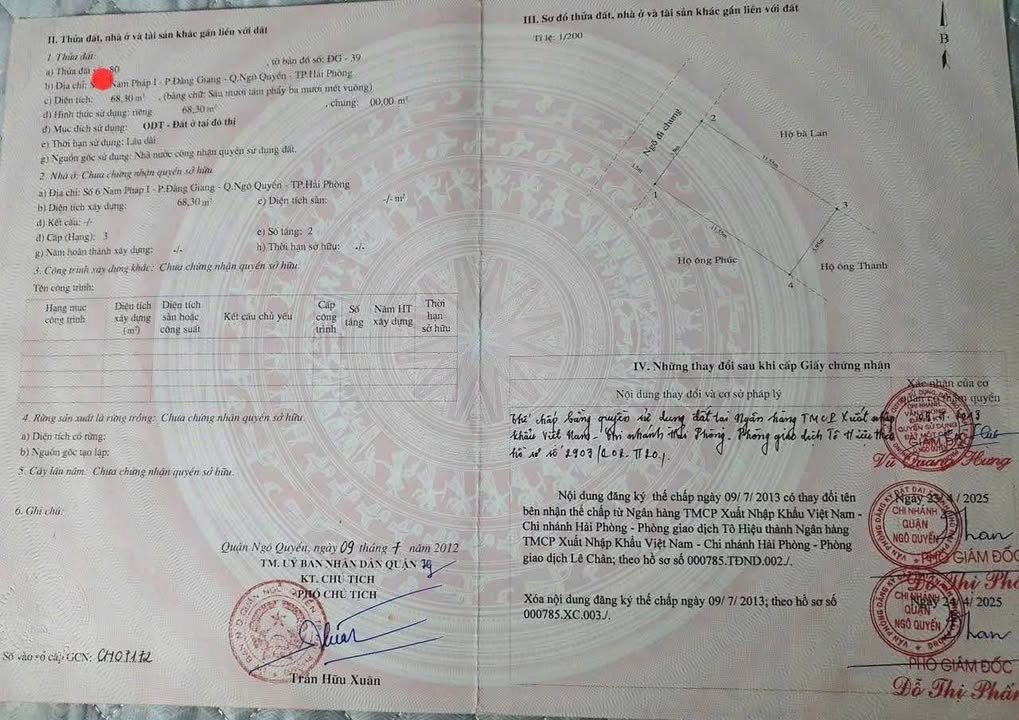 II. Thửa đất, nhà ở và tài sản khác gắn liền với đất
1. Thửa đất:
a) Thửa đất 80 , tờ bản đồ số: ĐG - 39
b) Địa chỉ: Nam Pháp I - P.Đằng Giang - Q.Ngô Quyền - TP.Hải Phòng
c) Diện tích: 68,30 m² , (bằng chữ: Sáu mươi tám phẩy ba mươi mét vuông)
d) Hình thức sử dụng: riêng 68,30 m² , chung: 00,00 m²
đ) Mục đích sử dụng: ODT - Đất ở tại đô thị
e) Thời hạn sử dụng: Lâu dài
g) Nguồn gốc sử dụng: Nhà nước công nhận quyền sử dụng đất.
2. Nhà ở: Chưa chứng nhận quyền sở hữu
a) Địa chỉ: Số 6 Nam Pháp I - P.Đằng Giang - Q.Ngô Quyền - TP.Hải Phòng
b) Diện tích xây dựng: 68,30 m² c) Diện tích sàn: -/- m²
d) Kết cấu: -/-
đ) Cấp (Hạng): 3 e) Số tầng: 2
g) Năm hoàn thành xây dựng: -/- h) Thời hạn sở hữu: -/-
3. Công trình xây dựng khác: Chưa chứng nhận quyền sở hữu
Tên công trình:
Hạng mục công trình Diện tích xây dựng (m²) Diện tích sàn hoặc công suất Kết cấu chủ yếu Cấp công trình Số tầng Năm HT xây dựng Thời hạn sở hữu
4. Rừng sản xuất là rừng trồng: Chưa chứng nhận quyền sở hữu
a) Diện tích có rừng:
b) Nguồn gốc tạo lập:
5. Cây lâu năm: Chưa chứng nhận quyền sở hữu.
6. Ghi chú:
Quận Ngô Quyền, ngày 09 tháng 7 năm 2012
TM. UỶ BAN NHÂN DÂN QUẬN
KT. CHỦ TỊCH
PHÓ CHỦ TỊCH
Trần Hữu Xuân
Số vào sổ cấp GCN: CH01172
III. Sơ đồ thửa đất, nhà ở và tài sản khác gắn liền với đất
Tỉ lệ: 1/200
B
Ngõ đi chung
2
Hộ bà Lan
1
3
Hộ ông Phúc
Hộ ông Thanh
4
IV. Những thay đổi sau khi cấp Giấy chứng nhận
Nội dung thay đổi và cơ sở pháp lý
Xác nhận của cơ quan có thẩm quyền
Thế chấp bằng quyền sử dụng đất tại Ngân hàng TMCP Xuất nhập
khẩu Việt Nam - Chi nhánh Hải Phòng - Phòng giao dịch Tô Hiệu theo
hồ sơ số 2903
GIÁM ĐỐC
Vũ Quang Hưng
Nội dung đăng ký thế chấp ngày 09/ 7/ 2013 có thay đổi tên
bên nhận thế chấp từ Ngân hàng TMCP Xuất Nhập Khẩu Việt Nam -
Chi nhánh Hải Phòng - Phòng giao dịch Tô Hiệu thành Ngân hàng
TMCP Xuất Nhập Khẩu Việt Nam - Chi nhánh Hải Phòng - Phòng
giao dịch Lê Chân; theo hồ sơ số 000785.TĐND.002./.
Ngày 23/4 / 2025
CHI NHÁNH
QUẬN
NGÔ QUYỀN
PHÓ GIÁM ĐỐC
Đỗ Thị
Xóa nội dung đăng ký thế chấp ngày 09/ 7/ 2013; theo hồ sơ số
000785.XC.003./.
Ngày 24/4/2025
CHI NHÁNH
QUẬN
NGÔ QUYỀN
PHÓ GIÁM ĐỐC
Đỗ Thị